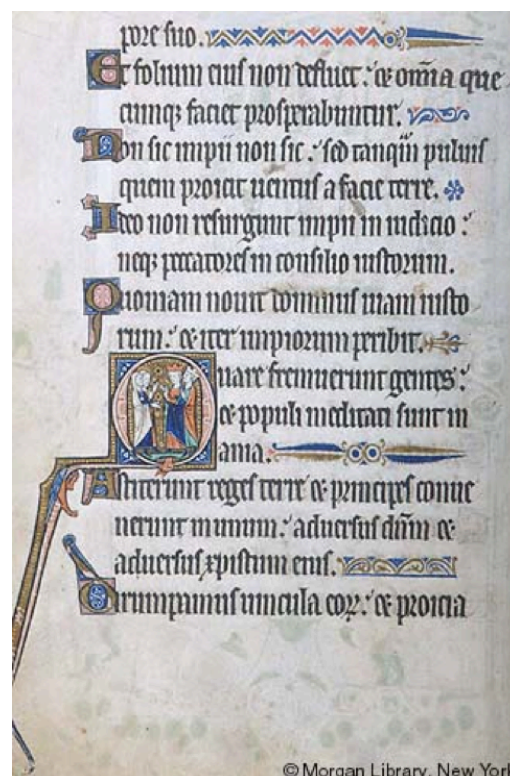 pore suo.
Et folium eius non defluet: & om̄ia que
cumq; faciet prosperabuntur.
Non sic impii non sic: sed tanqͣm puluis
quem proicit uentus a facie terre.
Ideo non resurgunt impii in iudicio:
neq; peccatores in consilio iustorum.
Quoniam nouit dominus uiam iusto
rum: & iter impiorum peribit.
Quare fremuerunt gentes:
& populi meditati sunt in
ania.
Astiterunt reges terre & principes conue
nerunt in unum: aduersus dn̄m &
aduersus xpistum eius.
Dirumpamus uincula eoꝝ: & proicia
© Morgan Library, New York